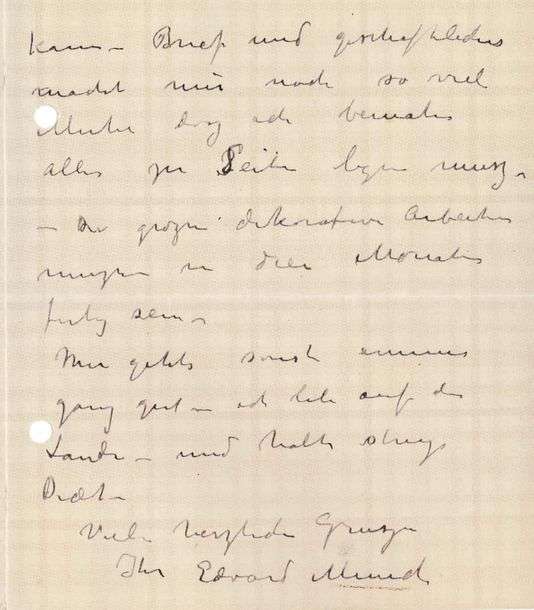 kann – Brief und geschäftliches
macht mir noch so viel
Mühe dasz ich beinahe
alles zu Seite legen musz –
– Die groszen dekorative Arbeiten
muszen in drei Monaten
fertig sein –
Mir gehts sonst immer
ganz gut – ich lebe auf dem
Lande – und halte strenge
Diæt –
Viele herzliche Grusze
Ihr Edvard Munch